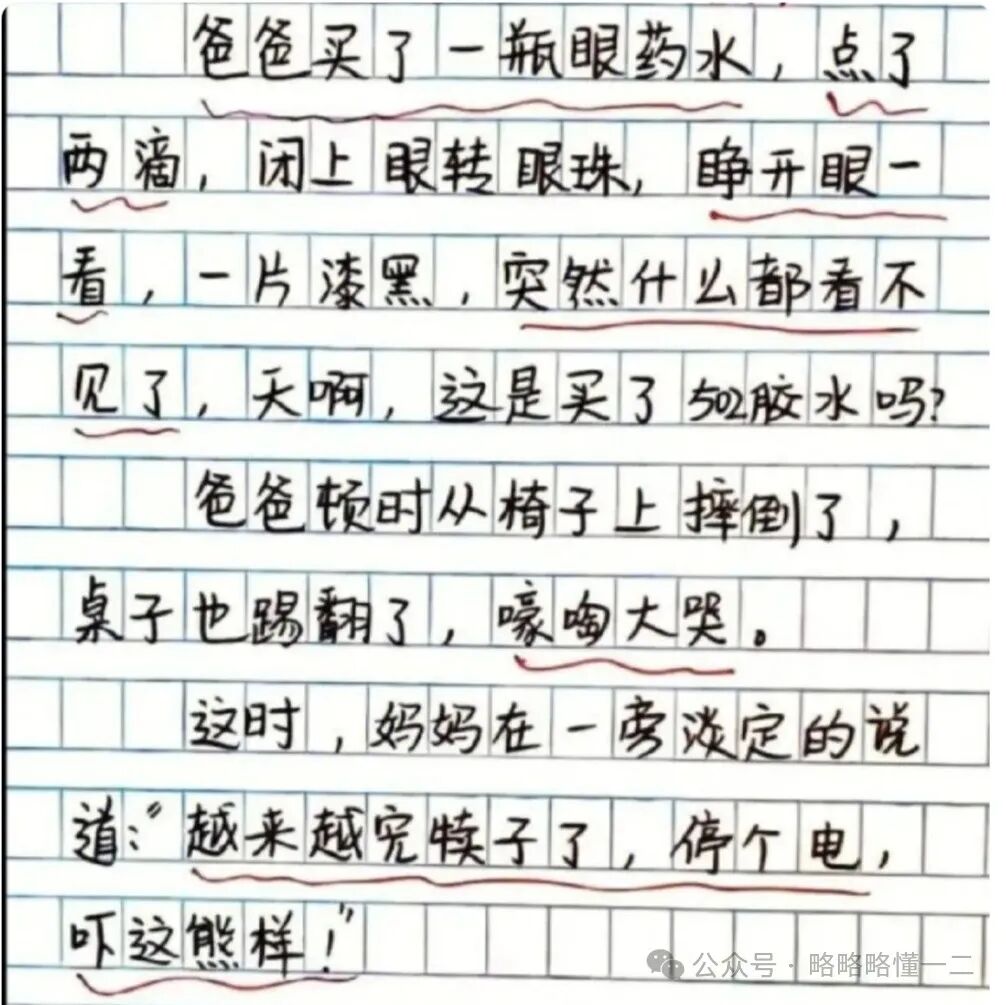 爸爸买了一瓶眼药水，点了
两滴，闭上眼转眼珠，睁开眼一
看，一片漆黑，突然什么都看不
见了，天啊，这是买了502胶水吗？
爸爸顿时从椅子上摔倒了，
桌子也踢翻了，嚎啕大哭。
这时，妈妈在一旁淡定的说
道：“越来越完犊子了，停个电，
吓这熊样！”
公众号·略略略懂一二